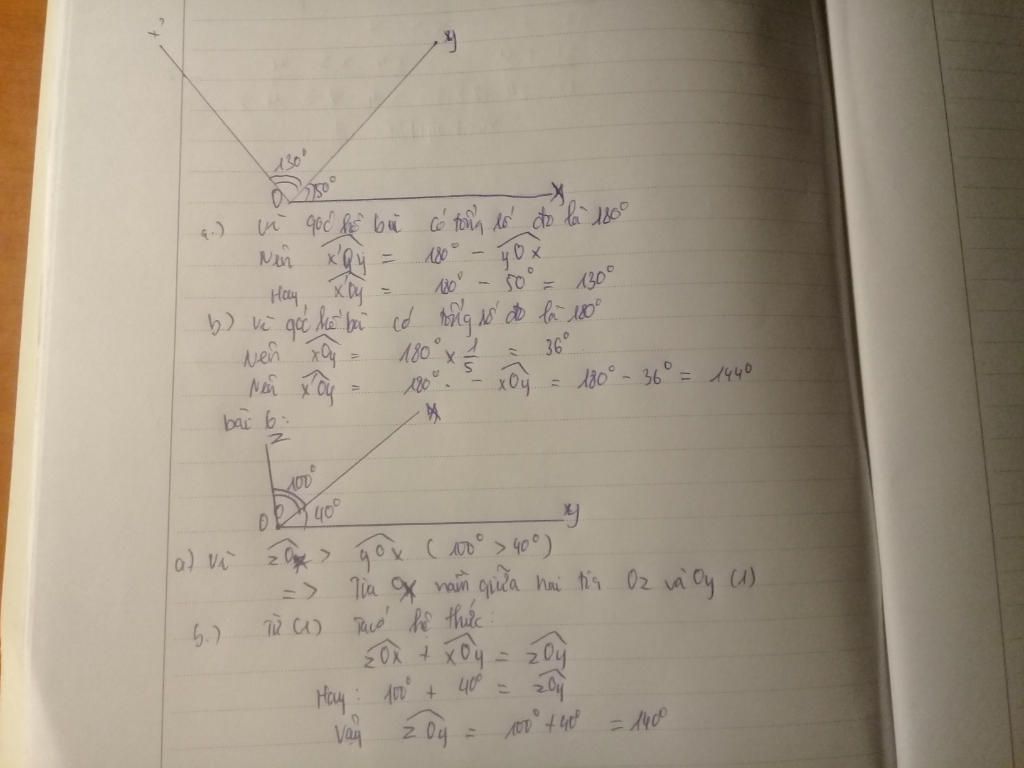 x'
y
130°
O
50°
x
a.) Vì góc kề bù có tổng số đo là 180°
Nên x'Oy = 180° - yOx
Hay x'Oy = 180° - 50° = 130°
b.) Vì góc kề bù có tổng số đo là 180°
Nên xOy = 180° x 1/5 = 36°
Nên x'Oy = 180°. - xOy = 180° - 36° = 144°
bài 6:
z
x
100°
40°
O
y
a) Vì zOx > yOx (100° > 40°)
=> Tia Ox nằm giữa hai tia Oz và Oy (1)
b.) Từ (1) Ta có hệ thức:
zOx + xOy = zOy
Hay: 100° + 40° = zOy
Vậy zOy = 100° + 40° = 140°